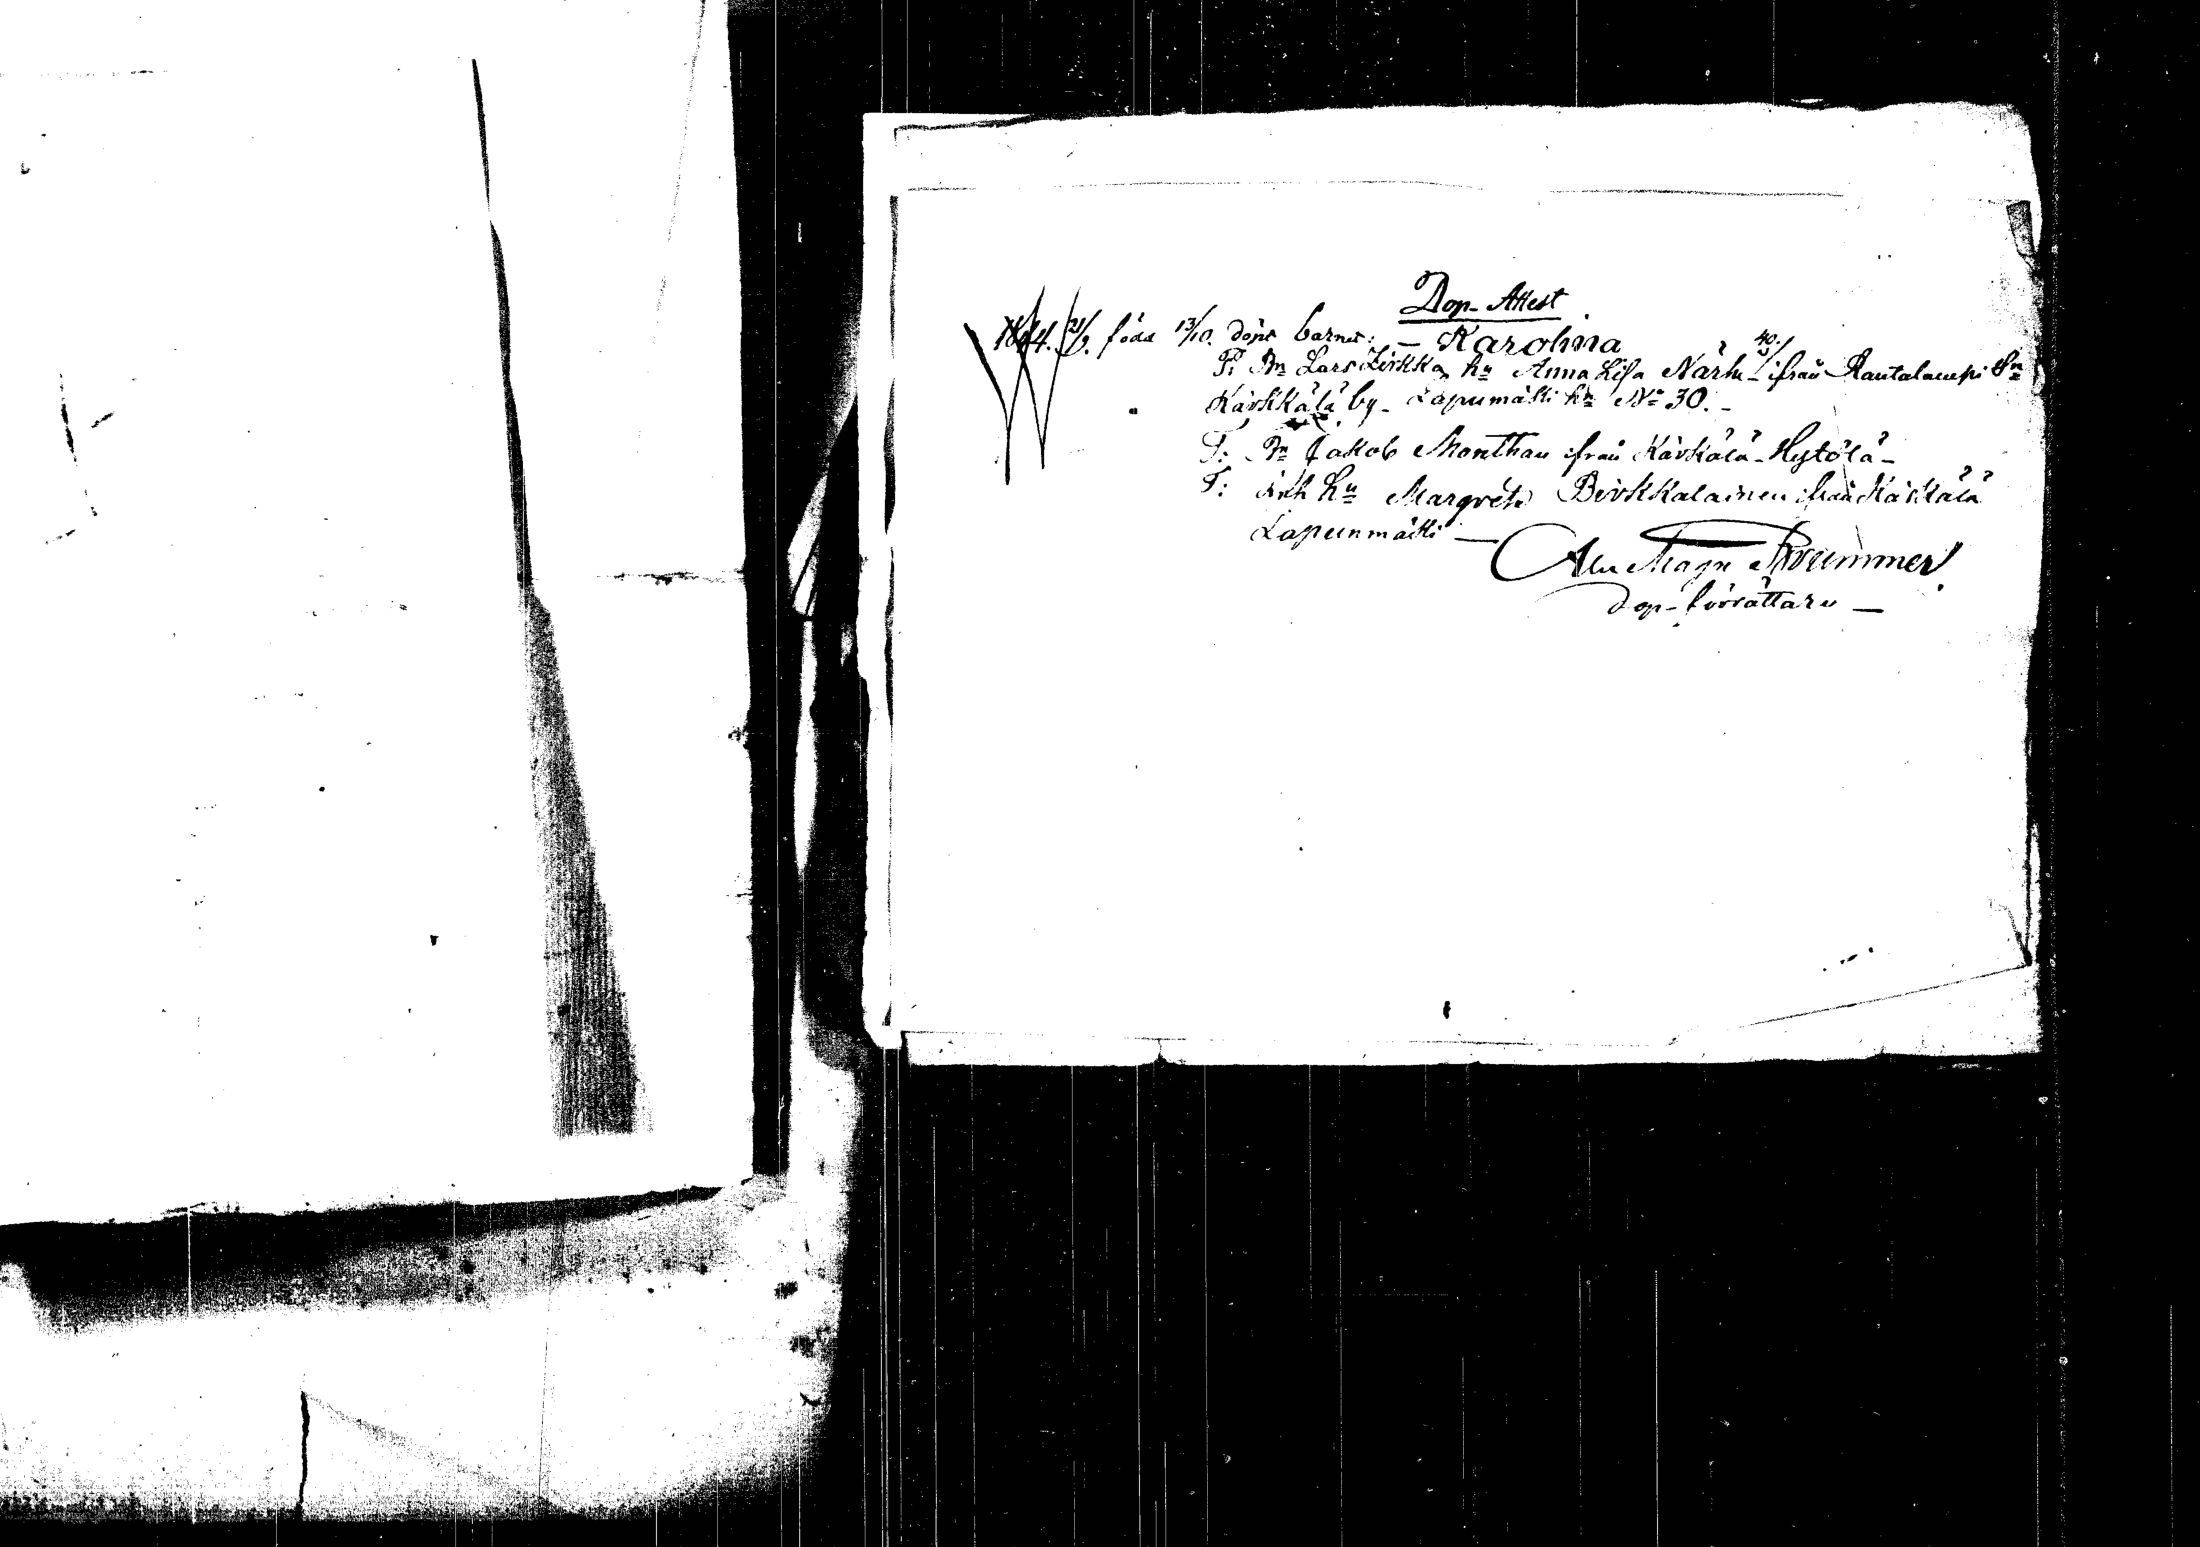 Dop-Attest
född 13/10. döpt barnet: – Karolina
F: Bn Lars Hu Anna Lisa Närhi – 40/ ifrån Rautalampi Sn
Kärkkälä by – Lapunmäki hn No 30. –
F: Bn Jakob Monthan ifrån Kärkälä – Hytölä –
F: Hu Margreta Birkkalainen ifrån Kärkälä
Lapunmäki –
Brummer
Dop-förrättare –